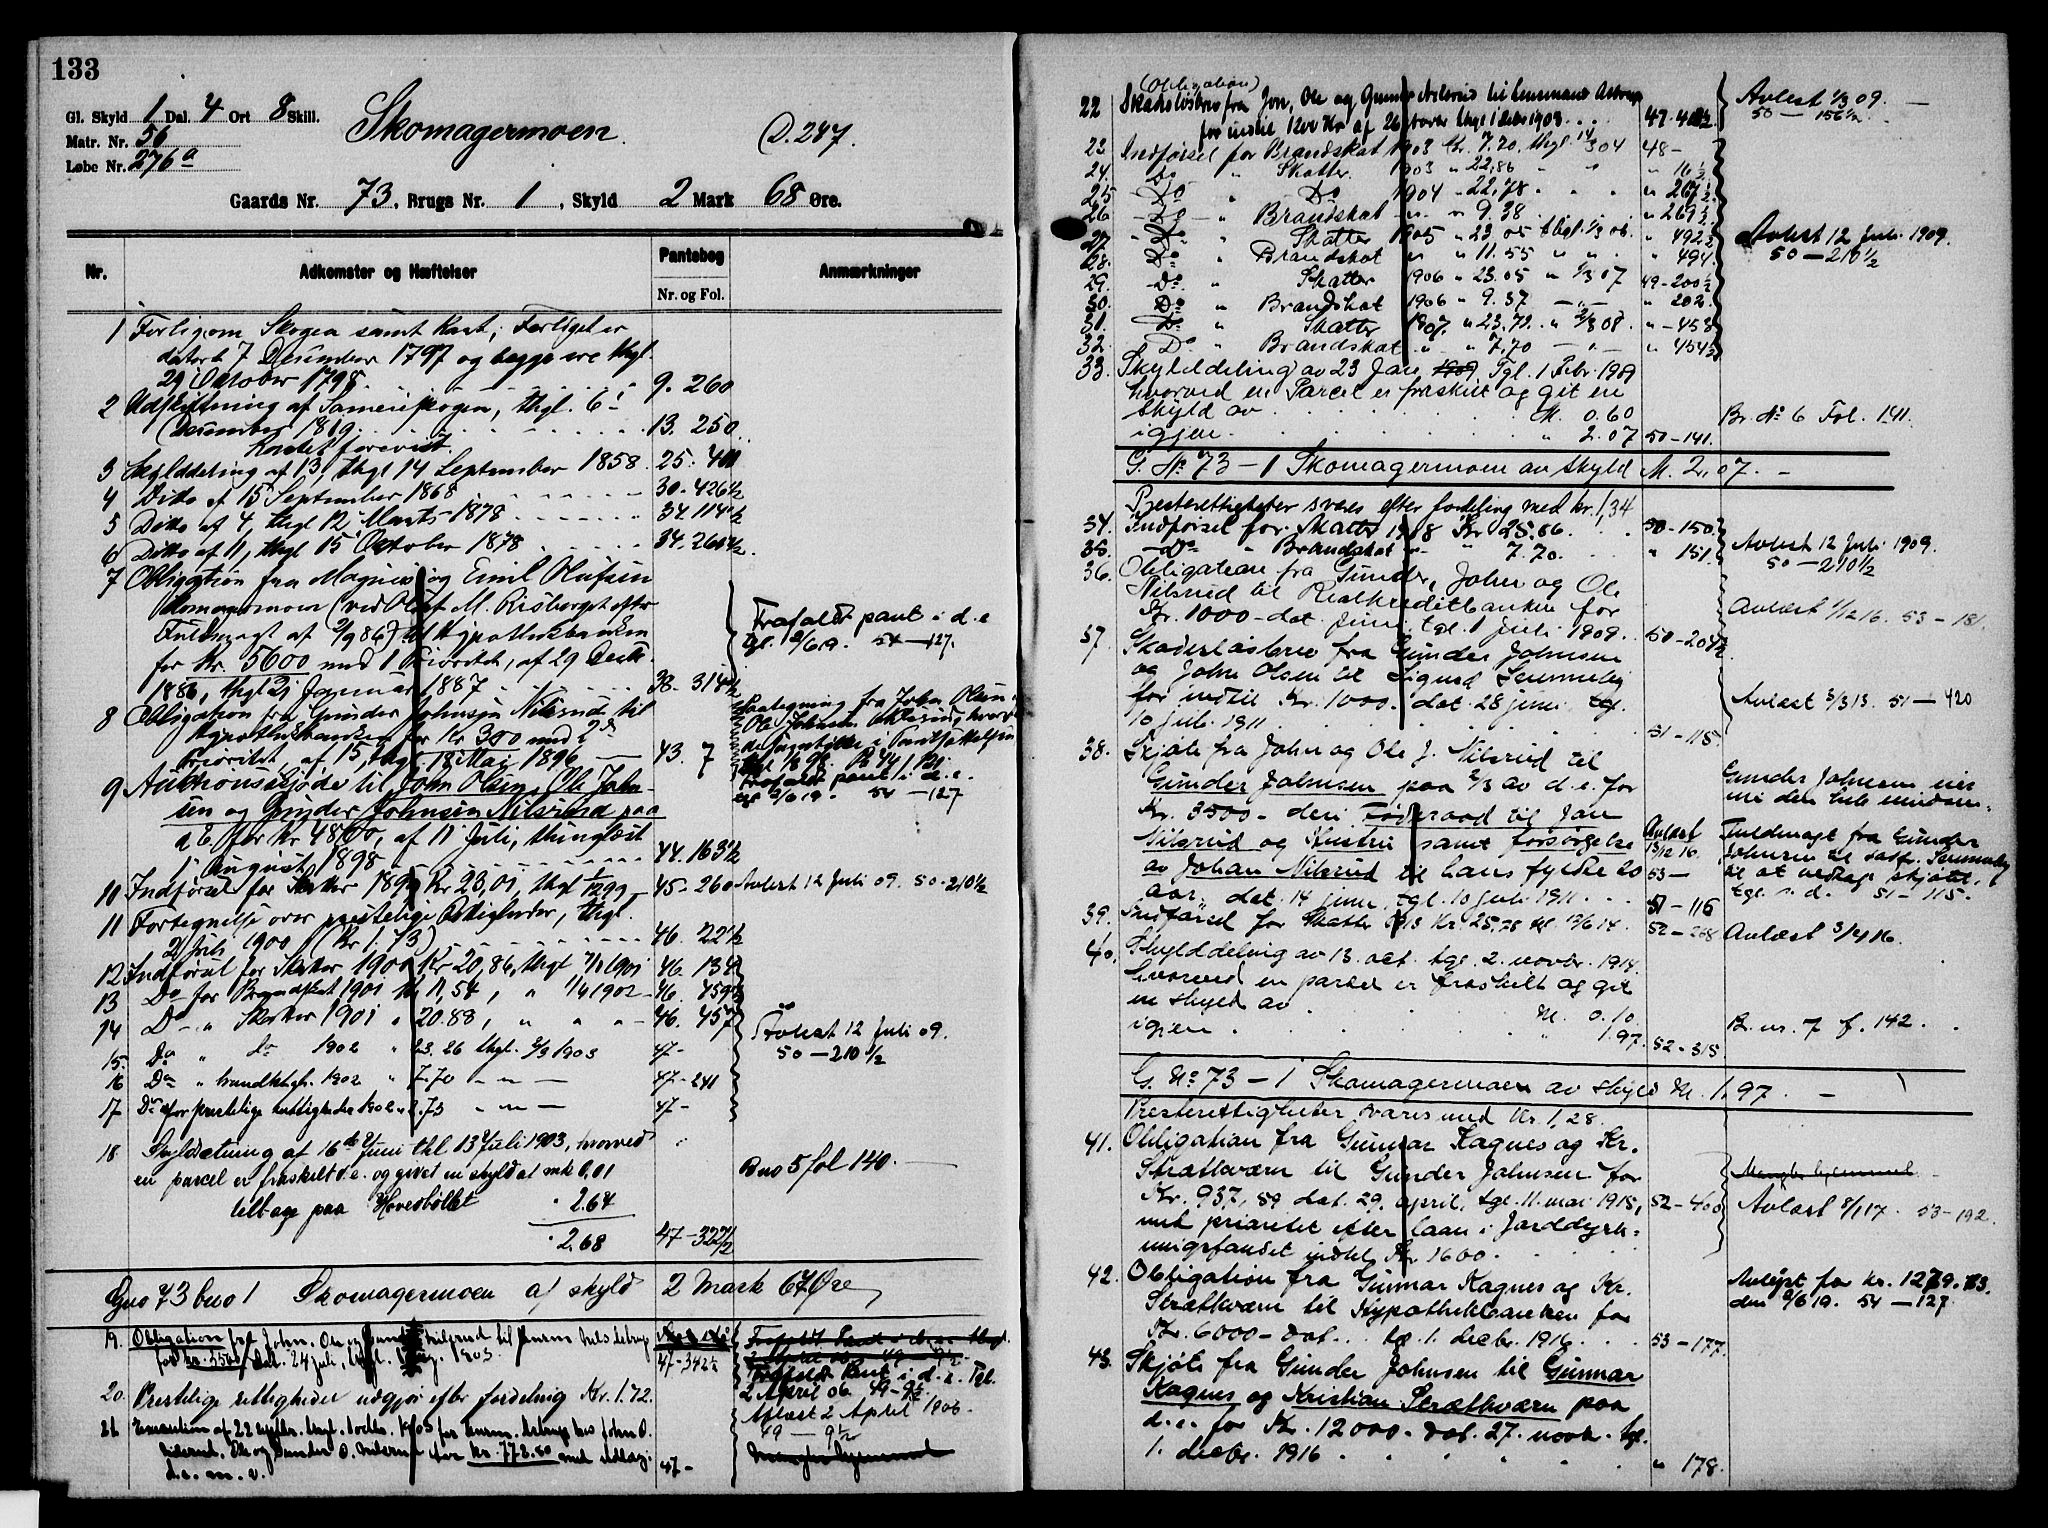 133
Gl. Skyld 1 Dal. 4 Ort 8 Skill.
Matr. Nr. 56
Løbe Nr. 276a
Skomagermoen.
D. 247.
Gaards Nr. 73, Brugs Nr. 1, Skyld 2 Mark 68 Øre.
Nr. Adkomster og Hæftelser Pantebog Anmærkninger
Nr. og Fol.
1 Forlig om Skogen samt Kart, Forliget er
dateret 7 Desember 1797 og begge ere thgl.
29 October 1798. 9. 260
2 Udskiftning af Sameieskogen, thgl. 6
Desember 1819. 13. 250
Kartet forevist.
3 Skylddeling af 13, thgl 14 September 1858. 25. 411
4 Ditto af 15 September 1868 30. 426½
5 Ditto af 4, thgl 12 Marts 1878 34. 114½
6 Ditto af 11, thgl 15 October 1878 34. 261½
7 Obligation fra Magnus og Emil Olufsen
Skomagermoen (ved Oluf M. Risberget efter
Fuldmagt af 2/9 86) til Hypothekbanken
for Kr. 5600 med 1 Prioritet, af 29 Desbr.
1886, thgl 2j Januar 1887 38. 314½
Frafaldt pant i d. e
tgl. 2/6 19. 54—127.
8 Obligation fra Gunder Johnsen Nilsrud til
Hypothekbanken for Kr 300 med 2de
Prioritet, af 15, thgl 18 Mai 1896 43. 7
Paategning fra John Olsen
Ole Johnsen
Frafaldt pant i d. e.
tgl 2/6 19. 54—127
9 Auktionsskjøde til John Olsen, Ole John-
sen og Gunder Johnsen Nilsrud paa
d. E. for Kr 4800, af 11 Juli, thinglæst
1 August 1898 44. 163½
10 Indførsel for Skatter 1898 Kr 23,01, thgl 45- 260 Avlest 12 Juli 09. 50-210½
11 Fortegnelse over prestelige Rettigheder, thgl.
2 Juli 1900 (Kr 1.73) 46. 22½
12 Indførsel for Skatter 1900 Kr 20,86, thgl 1901 46. 134
13 Do for Brandskat 1901 Kr 11,54, " 1/4 1902 46. 459½
14 Do — " Skatter 1901 " 20.88, " " " 46. 457
Avlest 12 Juli 09.
50—210½
15. Do " do 1902 " 23.26 thgl. 2/3 1903 47-
16 Do " brandktgt. 1902 " 7.70 — " — 47-241
17 Do for prestelige rettigheder 1902 " 2.73 " — " — 47-
18 Skyldsetning af 16de Juni thl 13 Juli 1903, hvorved
en parcel er fraskilt d. e. og givet en skyld af mk 0.01
tilbage paa Hovedbøllet " 2.67
" 2.68 47-322½
Bno 5 fol 140.
Gno 73 bno 1 Skomagermoen af skyld 2 Mark 67 Øre
19. Obligation fra John, Ole og Gunder Nilsrud til
47-342½
Frafaldt Pant i d. e. Tgl.
2 April 06 49-9½
20. Prestelige rettigheder utgjør efter fordeling Kr. 1.72.
Aflæst 2 April 1906.
49—9½
21. Exsecution af 22 septbr. thgl. 1903 for lensm. Astrup hos John O.
Nilsrud, Ole og Gunder O. Nilsrud for Kr. 772.80 med udlæg i
d. e. m. v. 47-
(Obligation)
22 Skadesløsbrev fra Jon, Ole og Gunder Nilsrud til lensmand Astrup
for indtil 1200 Kr. af 26 thgl 1 Debr 1903 47-401½
Avlest 1/3 09. —
50—156½.
23 Indførsel for Brandskat 1903 Kr. 7.70, thgl 14/3 04 48-
24. Do " Skatter 1903 " 22,86 " " " 16½
25 Do " Do 1904 " 22,78 " " " 267½
26 Do " Brandskat " " 9.38 " 269½
27. Do " Skatter 1905 " 23.05 thgl. 1/3 06. " 492½
28. Do " Brandskat " " 11.55 " " " 494
Avlest 12 Juli 1909.
50—210½
29. Do " Skatter 1906 " 23.05 " 1/3 07 49-200½
30. Do " Brandskat 1906 " 9.37 — " — " 202.
31. Do " Skatter 1907. " 23.72. " 2/3 08. " - 453
32. Do " Brandskat " " 7,70 — " — " 454½
33. Skylddeling av 23 Jan. 1909 Tgl. 1 Febr. 1909
hvorved en Parcel er fraskilt og git en
Skyld av M. 0.60
igjen " 2.07 50-141.
Br. No 6 Fol. 141.
G. No 73—1 Skomagermoen av skyld M. 2,07. —
Presterettigheter svares efter fordeling med kr. 1,34
34. Indførsel for Skatter 1908 Kr 25.66 50-150.
35. —Do— " Brandskat " " 7.70. " 151
Avlest 12 Juli 1909.
50—210½
36. Obligation fra Gunder, John og Ole
Nilsrud til Realkreditbanken for
Kr. 1000- dat. juni, tgl. 1 juli 1909. 50-204½
Avlæst 1/12 16. 53-181.
37. Skadesløsbrev fra Gunder Johnsen
og John Olsen til Sigurd Semmeby
for indtil Kr. 1000. dat. 28 juni tgl.
10 juli 1911 51-115.
Avlæst 3/3 13. 51—420
38. Skjøte fra John og Ole J. Nilsrud til
Gunder Johnsen paa 2/3 av d. e. for
Kr. 3500 - deri Føderaad til Jon
Nilsrud og Hustru samt forsørgelse
av Johan Nilsrud til hans fyldte 20
aar, dat. 14 juni, tgl. 10 juli 1911. 51-116
Avlæst
13/12 16.
53—
Gunder Johnsen eier
nu den hele eiendom.
Fuldmagt fra Gunder
Johnsen til sadf. Semmeby
til at vedtage skjøtet,
tgl. s. d. 51-115.
39. Indførsel for Skatter 1913 Kr. 25,28 tgl. 12/6 14. 52-268 Avlæst 3/4 16.
40. Skylddeling av 13. oct. tgl. 2. novbr. 1914.
hvorved en parcel er fraskilt og git
en skyld av M. 0.10.
igjen " 1.97. 52-315.
B. nr. 7 f. 142.
G. No 73—1 Skomagermoen av skyld M. 1,97. —
Presterettigheter svares med Kr. 1,28.
41. Obligation fra Gunnar Kagnes og Kr.
Strætkværn til Gunder Johnsen for
Kr. 937,59 dat. 29. april, tgl. 11. mai 1915, 52-400
med prioritet efter laan i Jorddyrk-
ningsfondet indtil Kr. 1600.
Mangler hjemmel
Avlæst 8/1 17. 53-192.
42. Obligation fra Gunnar Kagnes og Kr.
Strætkværn til Hypothekbanken for
Kr. 6000 - dat. tgl. 1. decbr. 1916. 53-177.
Avlyst for kr. 1279.73.
den 2/6 19. 54—127.
43. Skjøte fra Gunder Johnsen til Gunnar
Kagnes og Kristian Strætkværn paa
d. e. for Kr. 12000. dat. 27. novbr. tgl.
1. decbr. 1916 " 178.